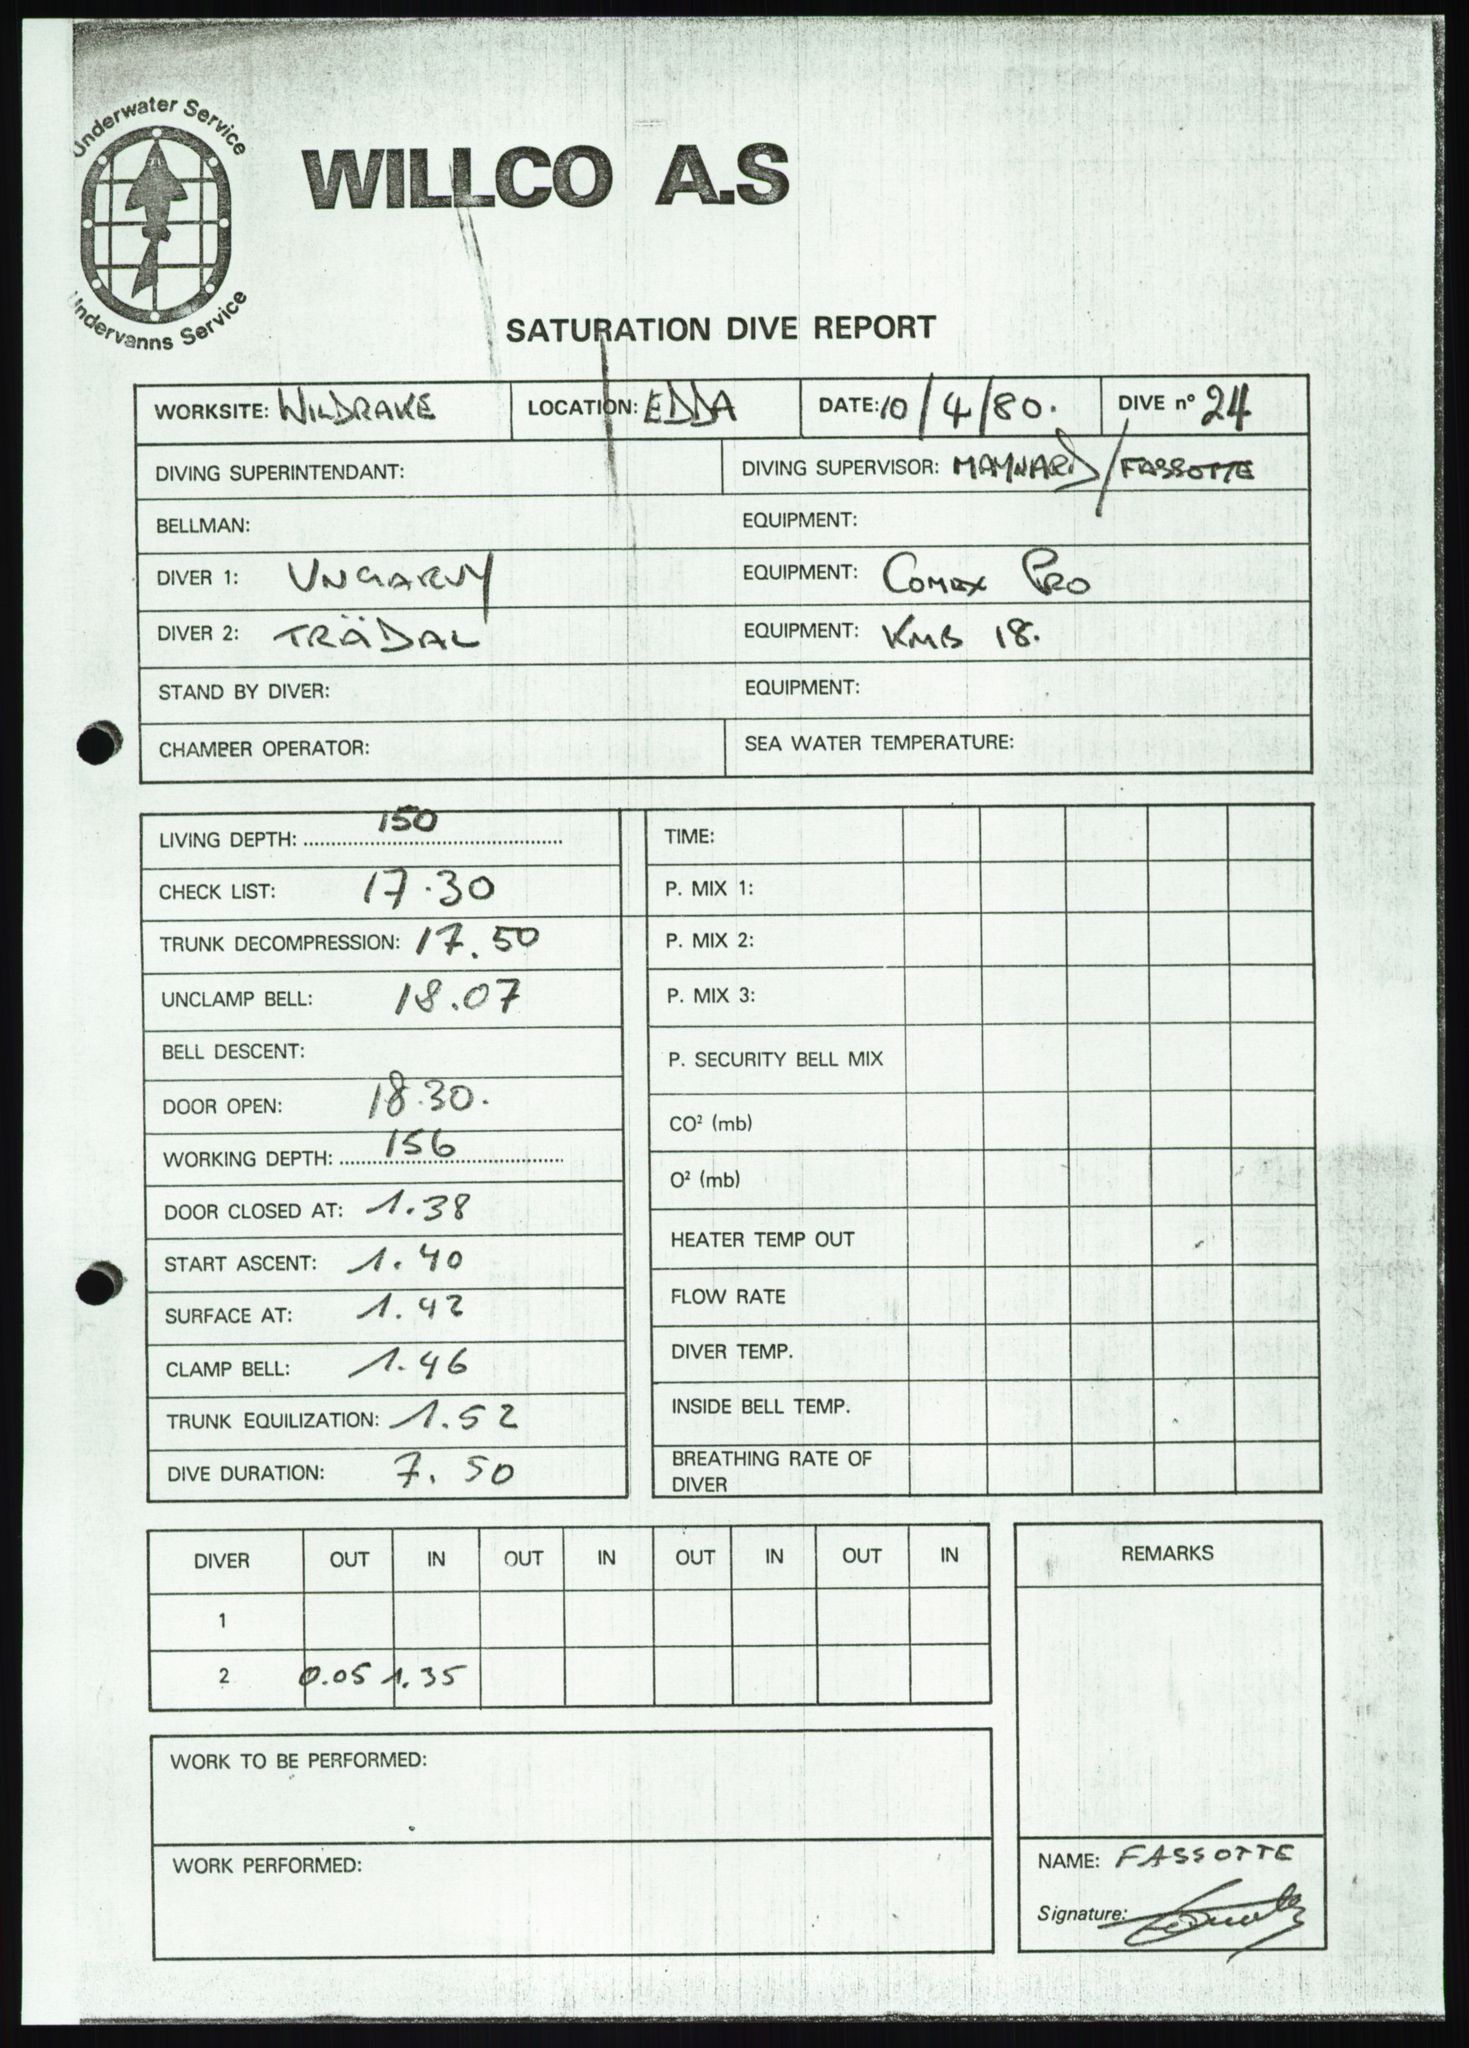 Underwater Service
Undervanns Service
WILLCO A.S
SATURATION DIVE REPORT
WORKSITE: WILDRAKE LOCATION: EDDA DATE: 10/4/80. DIVE n° 24
DIVING SUPERINTENDANT: DIVING SUPERVISOR: MAYNARD/FASSOTTE
BELLMAN: EQUIPMENT:
DIVER 1: EQUIPMENT: COMEX PRO
DIVER 2: TRÄDAL EQUIPMENT: KMB 18.
STAND BY DIVER: EQUIPMENT:
CHAMBER OPERATOR: SEA WATER TEMPERATURE:
LIVING DEPTH: 150
CHECK LIST: 17.30
TRUNK DECOMPRESSION: 17.50
UNCLAMP BELL: 18.07
BELL DESCENT:
DOOR OPEN: 18.30.
WORKING DEPTH: 156
DOOR CLOSED AT: 1.38
START ASCENT: 1.40
SURFACE AT: 1.42
CLAMP BELL: 1.46
TRUNK EQUILIZATION: 1.52
DIVE DURATION: 7.50
TIME:
P. MIX 1:
P. MIX 2:
P. MIX 3:
P. SECURITY BELL MIX
CO² (mb)
O² (mb)
HEATER TEMP OUT
FLOW RATE
DIVER TEMP.
INSIDE BELL TEMP.
BREATHING RATE OF
DIVER
DIVER OUT IN OUT IN OUT IN OUT IN
1
2 0.05 1.35
REMARKS
WORK TO BE PERFORMED:
WORK PERFORMED:
NAME: FASSOTTE
Signature: